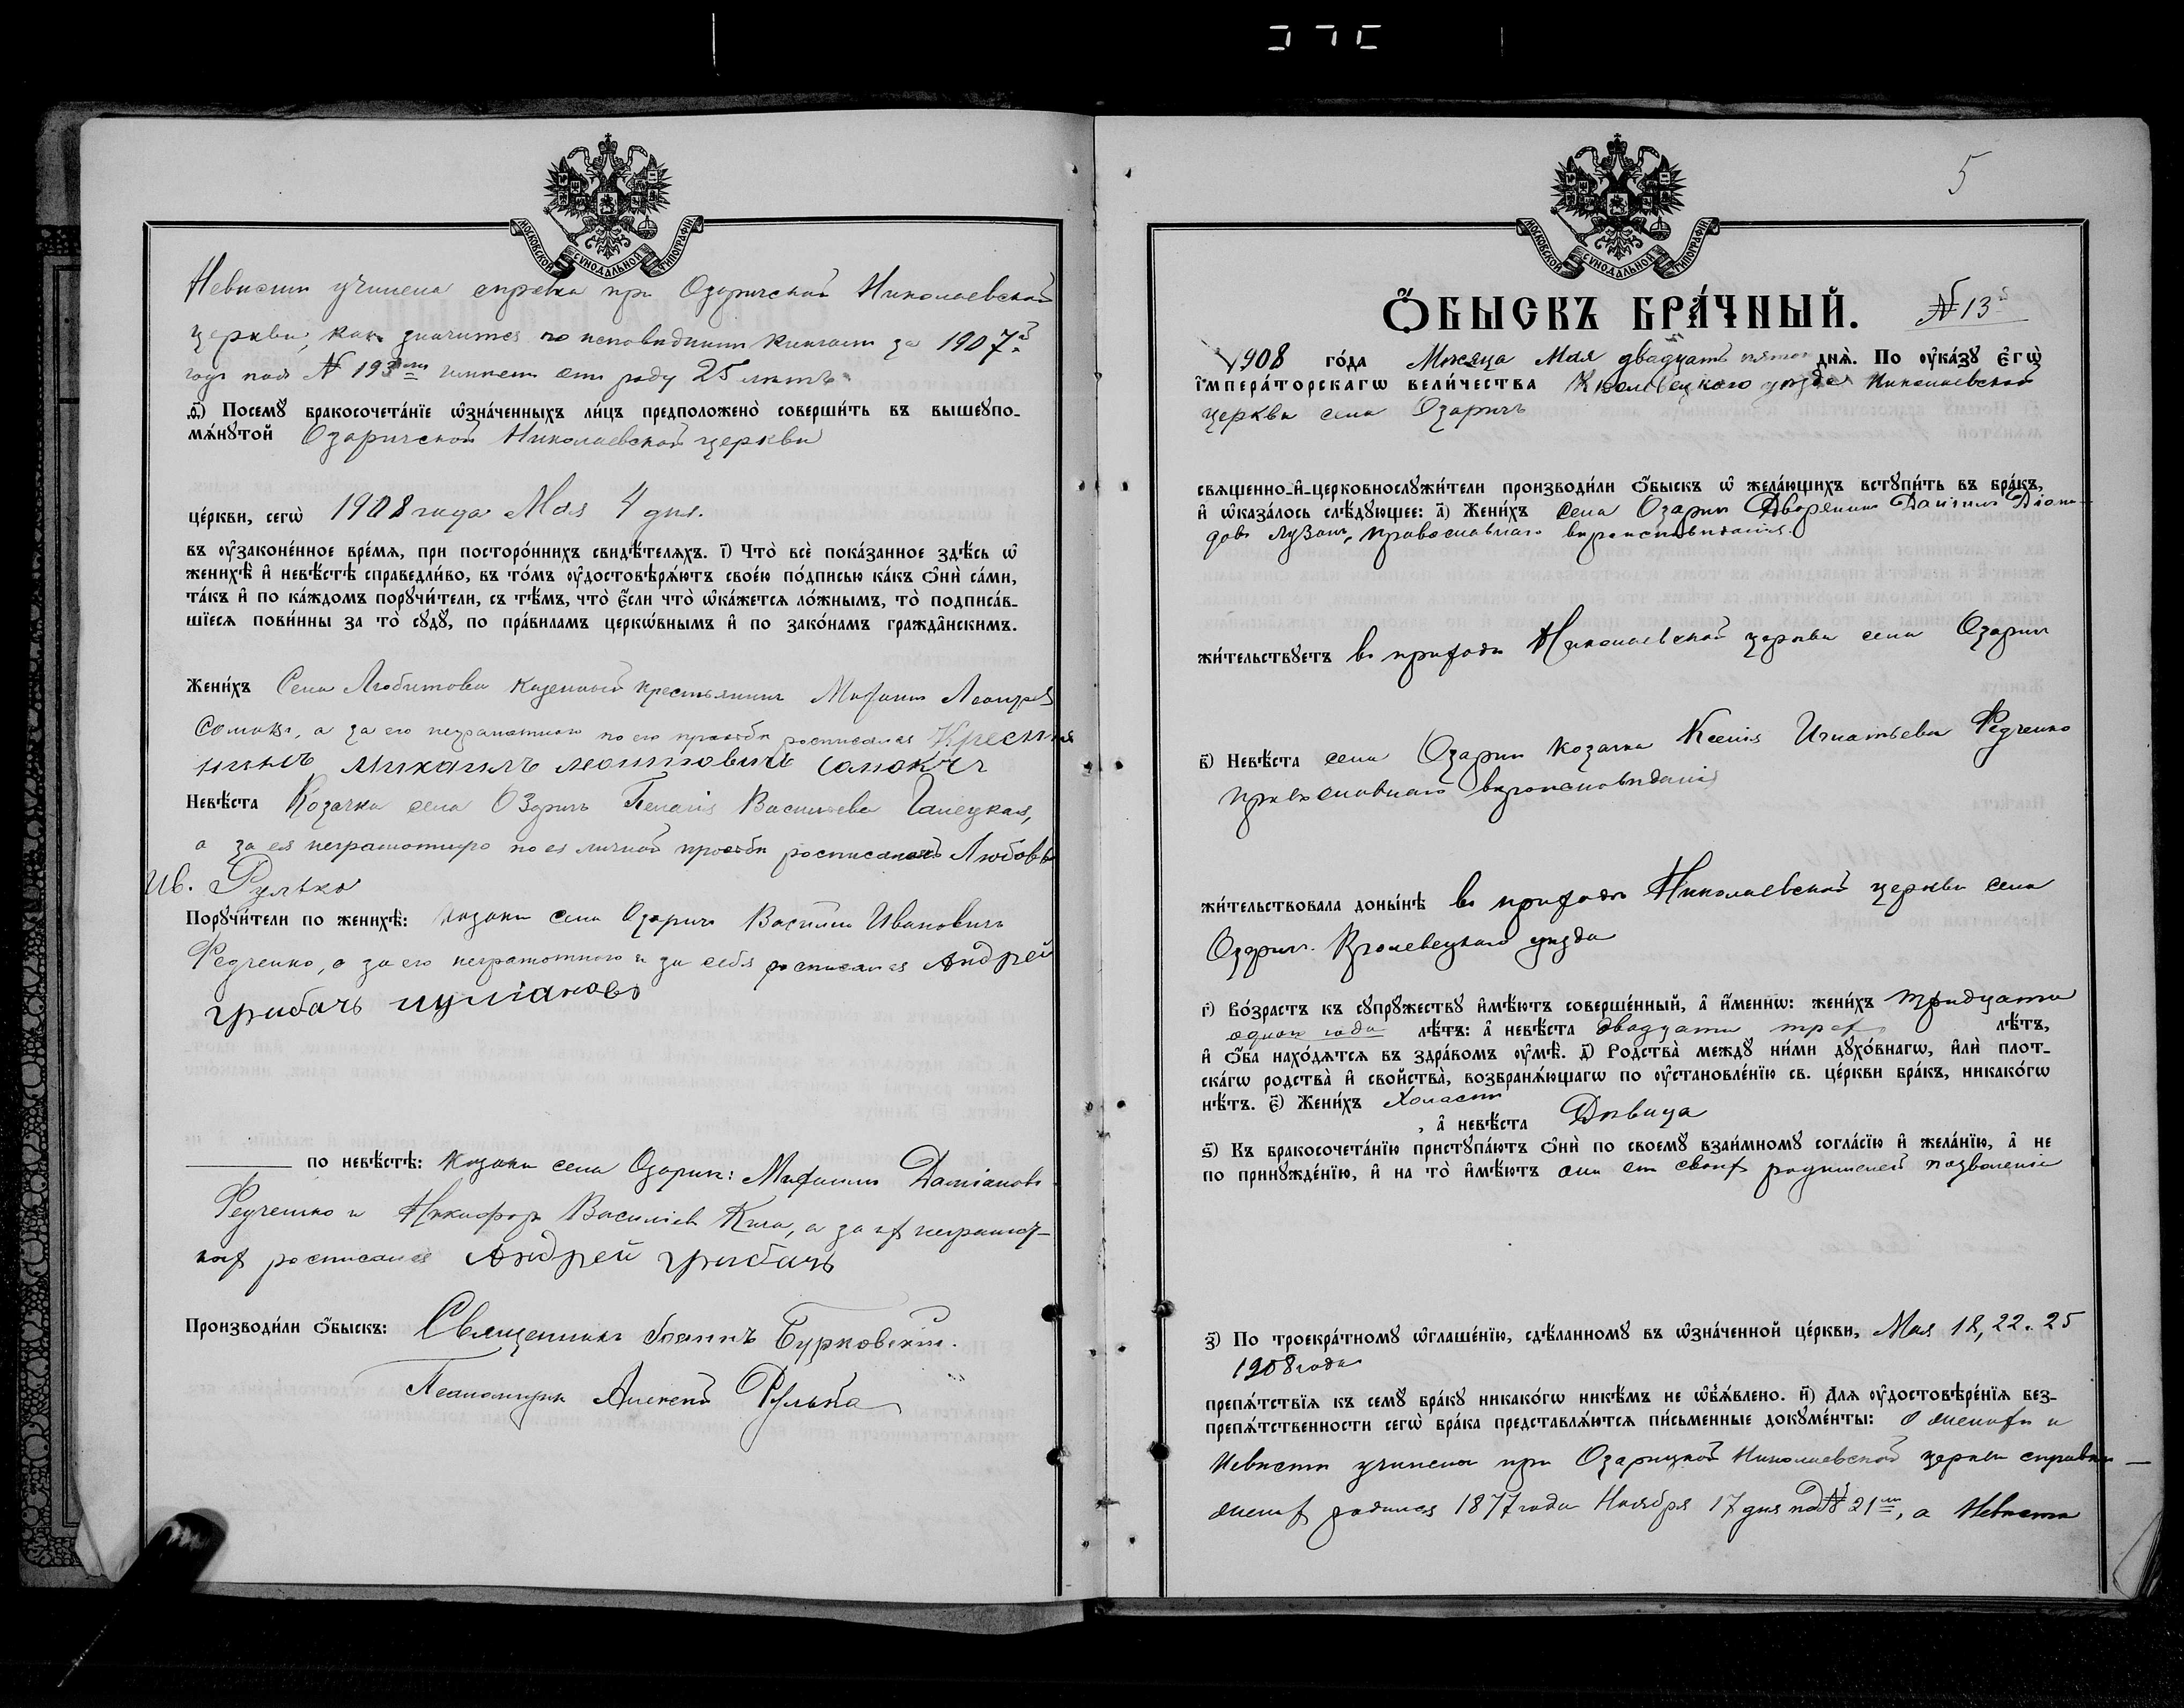 МОСКОВСКОЙ СѴНОДАЛЬНОЙ ТИПОГРАФІИ
Невисти учинена справка при Озаричской Николаевской
церкви, какъ значится по исповиднимъ книгамъ за 1907й
годъ подъ № 193 имеетъ отъ роду 25 литъ.
ѳ҃) Посемꙋ бракосочета́нїе ѡ҆зна́ченныхъ ли́цъ предположено̀ соверши́ть въ вышеꙋпо-
мѧ́нꙋтой Озаричской Николаевской церкви
це́ркви, сегѡ̀ 1908 года Мая 4 дня.
въ ᲂу҆законе́нное вре́мѧ, при посторо́ннихъ свидѣ́телѧхъ. і҃) Что̀ всѐ пока́занное здѣ́сь ѡ҆
женихѣ̀ и҆ невѣ́стѣ справедли́во, въ то́мъ ᲂу҆достовѣрѧ́ютъ свое́ю по́дписью ка́къ ѻ҆нѝ са́ми,
та́къ и҆ по ка́ждомъ порꙋчи́тели, съ тѣ́мъ, что̀ є҆́сли что̀ ѡ҆ка́жетсѧ ло́жнымъ, то̀ подписа́в-
шїесѧ пови́нны за то̀ сꙋдꙋ̀, по пра́виламъ церкѡ́внымъ и҆ по зако́намъ гражда̑нскимъ.
Жени́хъ Села Любитова казенный крестьянинъ Мафтей
Самокъ, а за его неграмотного по его просьби росписался Крестья
нинъ Михаилъ Самокъ
Невѣ́ста Козачка села Озаричъ Пелагія Васильева Галецкая,
а за ея неграмотную по ея личной просьби росписалась Любовь
Ив. Рулько
Порꙋчи́тели по женихѣ̀: Козаки села Озаричъ Василій Ивановичъ
Федченко, а за его неграмотного и за себя росписался Андрей
грибачъ
по невѣ́стѣ: Козаки села Озаричъ: Даміановъ
Федченко и Никифоръ Васильевъ Кича, а за их неграмот-
ных росписался Андрей грибачъ
Производи́ли ѻ҆́быскъ: Священникъ Іоаннъ Бурковскій.
Псаломщикъ Алексей Рулька
5
МОСКОВСКОЙ СѴНОДАЛЬНОЙ ТИПОГРАФІИ
Ѻ҆́БЫСКЪ БРА́ЧНЫЙ. № 13
1908 го́да Мисяца Мая двадцать пятого днѧ̀. По ᲂу҆ка́зꙋ є҆гѡ̀
і҆мпера́торскагѡ вели́чества Кролевецкого уизда Николаевской
церкви села Озаричъ
свѧщенно-и҆-церковнослꙋжи́тели производи́ли ѻ҆́быскъ ѡ҆ жела́ющихъ встꙋпи́ть въ бра́къ,
и҆ ѡ҆каза́лось слѣ́дꙋющее: а҃) Жени́хъ села Озаричъ Дворянинъ Даніилъ Діоми-
довъ Лузанъ, православнаго вироисповиданія.
жи́тельствꙋетъ въ приходи Николаевской церкви села Озаричъ
в҃) Невѣ́ста села Озаричъ козачка Ксенія Игнатьева Федченко
православнаго вироисповиданія
жи́тельствовала доны́нѣ въ приходи Николаевской церкви села
Озаричъ Кролевецкаго уизда
г҃) Во́зрастъ къ сꙋпрꙋ́жествꙋ и҆мѣ́ютъ соверше́нный, а҆ и҆́менно: жени́хъ тридцати
одного года лѣ́тъ: а҆ невѣ́ста двадцати трех лѣ́тъ,
и҆ ѻ҆́ба нахо́дѧтсѧ въ здра́вомъ ᲂу҆мѣ̀. д҃) Родства̀ междꙋ̀ ни́ми дꙋхо́внагѡ, и҆лѝ плот-
ска́гѡ родства̀ и҆ сво́йства̀, возбранѧ́ющагѡ по ᲂу҆становле́нїю св. це́ркви бра́къ, никако́гѡ
нѣ́тъ. є҃) Жени́хъ Холостъ
, а҆ невѣ́ста Дивица
ѕ҃) Къ бракосочета́нїю пристꙋпа́ютъ ѻ҆нѝ по своемꙋ̀ взаи́мномꙋ согла́сїю и҆ жела́нїю, а҆ не
по принꙋжде́нїю, и҆ на то̀ и҆мѣ́ютъ они от своих родителей позволеніе
з҃) По троекра́тномꙋ ѡ҆глаше́нїю, сдѣ́ланномꙋ въ ѡ҆зна́ченной це́ркви, Мая 18, 22. 25
1908 года
препѧ́тствїѧ къ семꙋ̀ бра́кꙋ никако́гѡ никѣ́мъ не ѡ҆б̾ѧ́влено. и҃) Длѧ ᲂу҆достовѣре́нїѧ без-
препѧ́тственности сегѡ̀ бра́ка представлѧ́ютсѧ пи́сьменные докꙋме́нты: О женихи и
невисти учинена при Озарицкой Николаевской церкви справка —
жених родился 1877 года Ноября 17 дня под № 21м, а Невиста